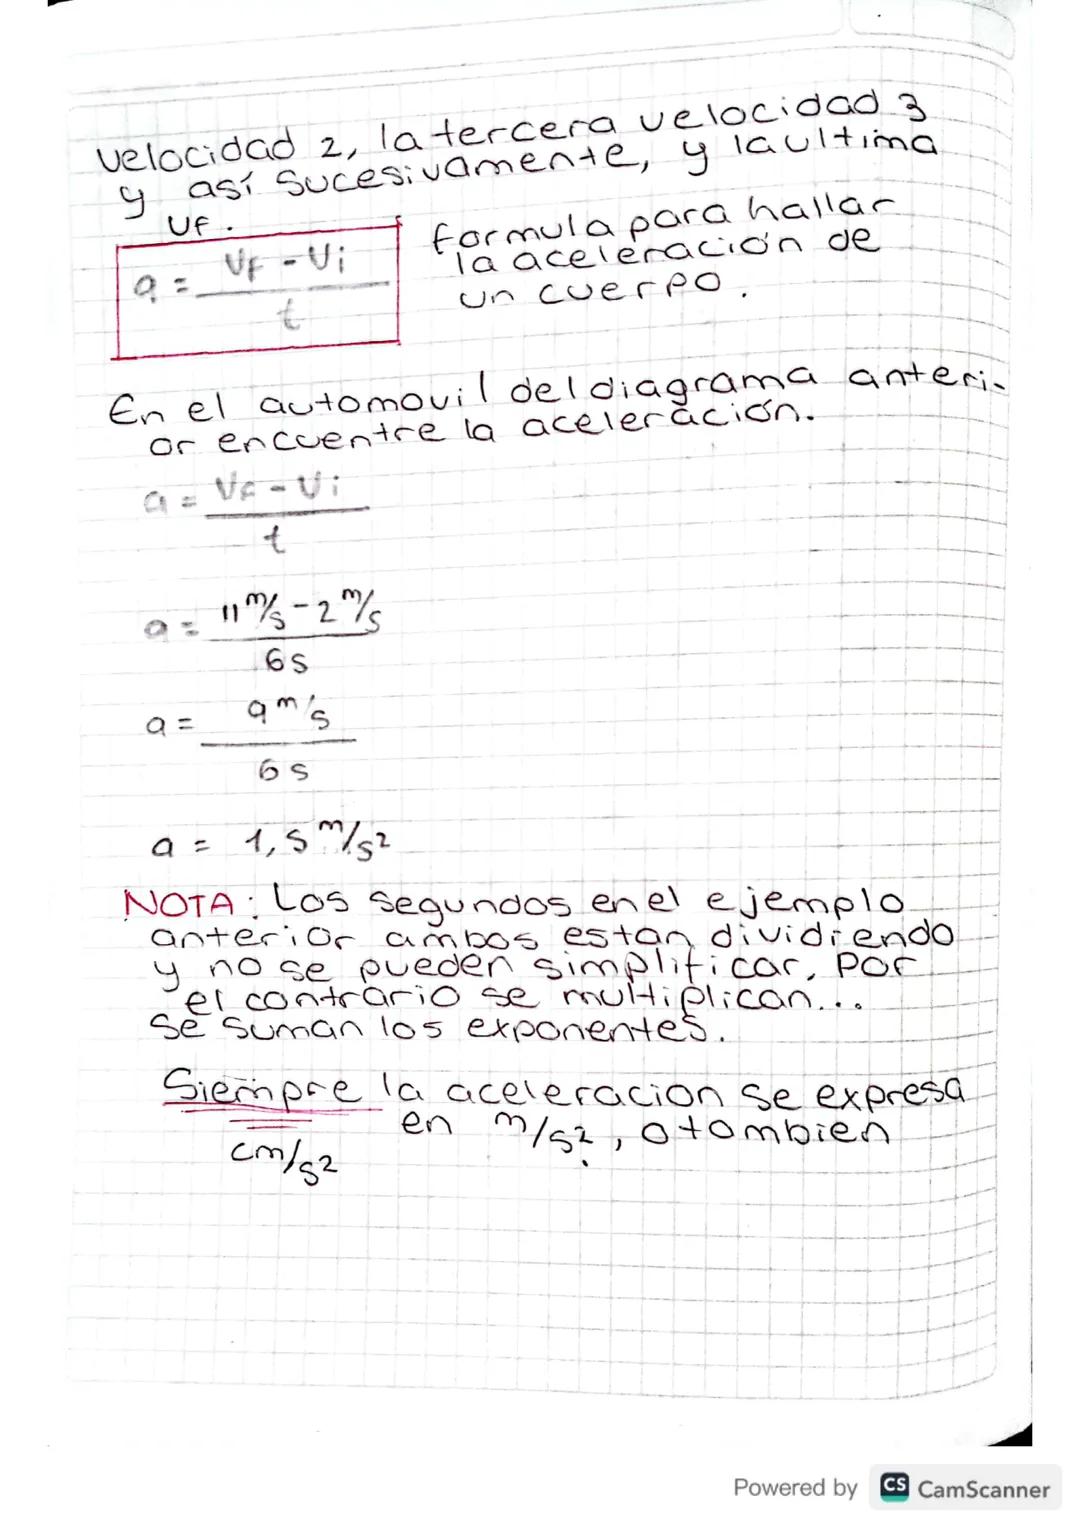 velocidad 2, la tercera velocidad 3
y así sucesivamente, y la ultima
VF.
a = VF - Vi / t
formula para hallar
la aceleración de
un cuerpo.
En el automovil del diagrama anteri-
or encuentre la aceleración.
a = VF - Vi / t
a = 11 m/s - 2 m/s / 6 s
a = 9 m/s / 6 s
a = 1,5 m/s²
NOTA: Los segundos en el ejemplo
anterior ambos estan dividiendo
y no se pueden simplificar, Por
el contrario se multiplican...
se suman los exponentes.
Siempre la aceleracion se expresa
en m/s², o tambien
cm/s²
Powered by CS CamScanner